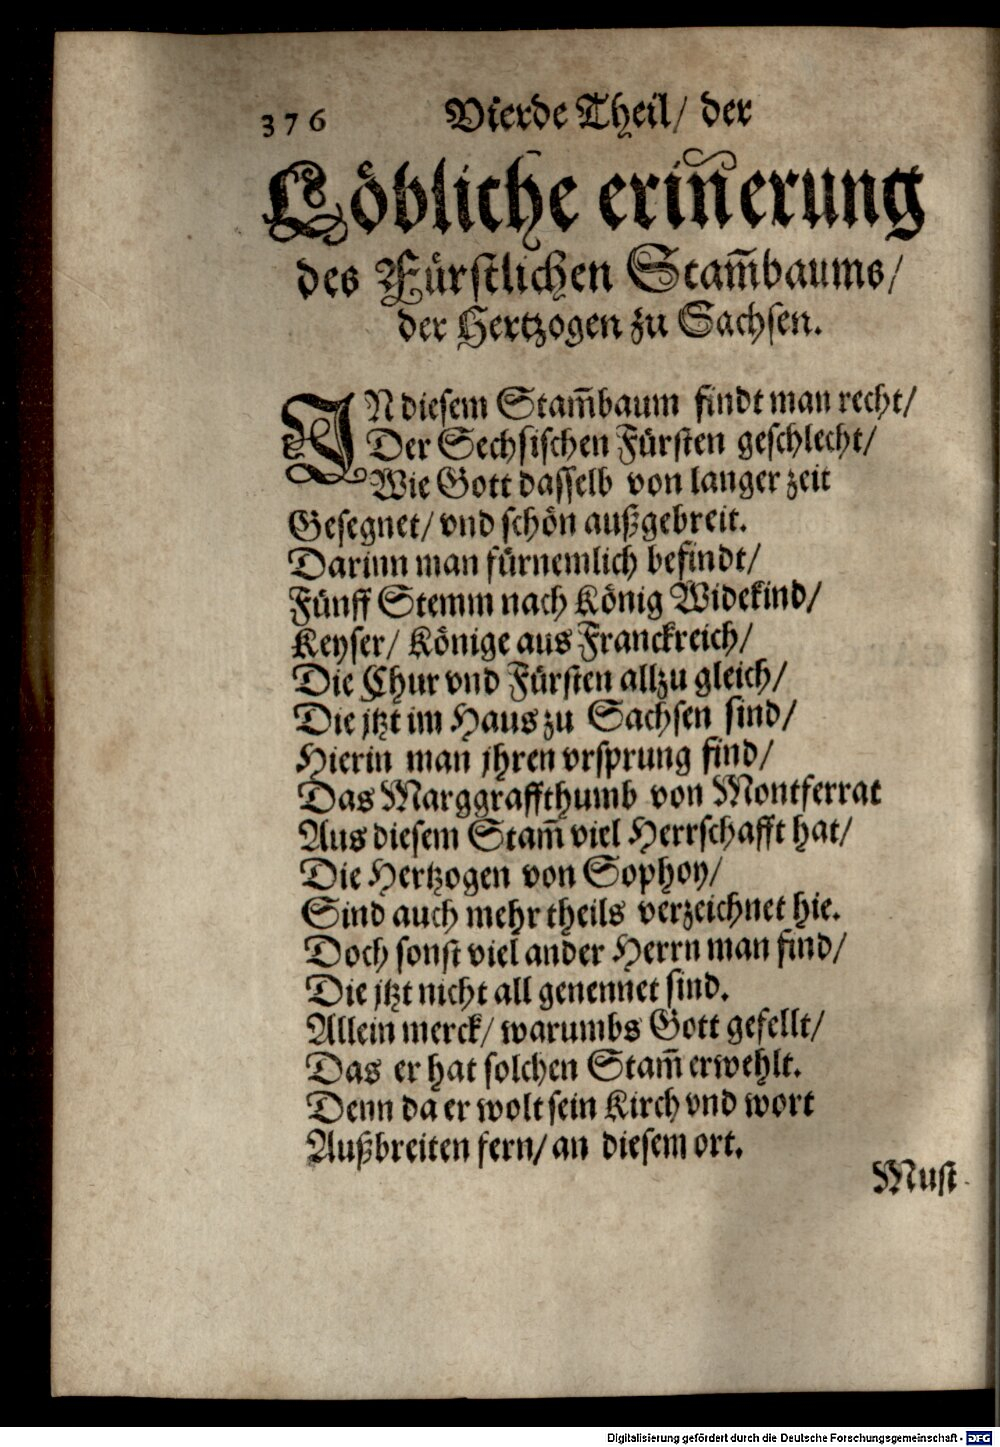 376 Vierde Theil/ der
Löbliche erin̄erung
des Fürstlichen Stam̄baums/
der Hertzogen zu Sachsen.
IN diesem Stam̄baum findt man recht/
Der Sechsischen Fürsten geschlecht/
Wie Gott dasselb von langer zeit
Gesegnet/ vnd schön außgebreit.
Darinn man fürnemlich befindt/
Fünff Stemm nach König Widekind/
Keyser/ Könige aus Franckreich/
Die Chur vnd Fürsten allzu gleich/
Die jtzt im Haus zu Sachsen sind/
Hierin man jhren vrsprung find/
Das Marggraffthumb von Montferrat
Aus diesem Stam̄ viel Herrschafft hat/
Die Hertzogen von Sophoy/
Sind auch mehrtheils verzeichnet hie.
Doch sonst viel ander Herrn man find/
Die jtzt nicht all genennet sind.
Allein merck/ warumbs Gott gefellt/
Das er hat solchen Stam̄ erwehlt.
Denn da er wolt sein Kirch vnd wort
Außbreiten fern/ an diesem ort.
Must
Digitalisierung gefördert durch die Deutsche Forschungsgemeinschaft - DFG